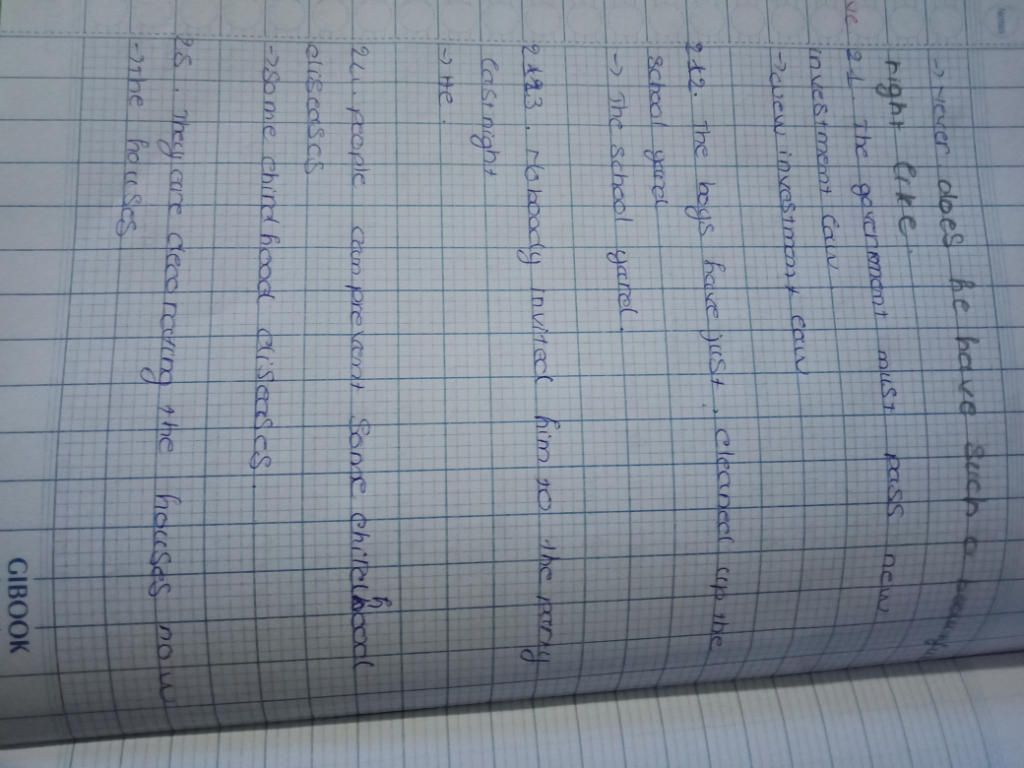 -> never does he have such a
night like.
21. The government must pass new
investment law
-> new investment law
22. The boys have just cleaned up the
school yard
-> The school yard.
23. Nobody invited him to the party
last night
-> He.
24. people can prevent some childhood
diseases
-> some childhood diseases.
25. They are decorating the houses now
-> the houses
GIBOOK